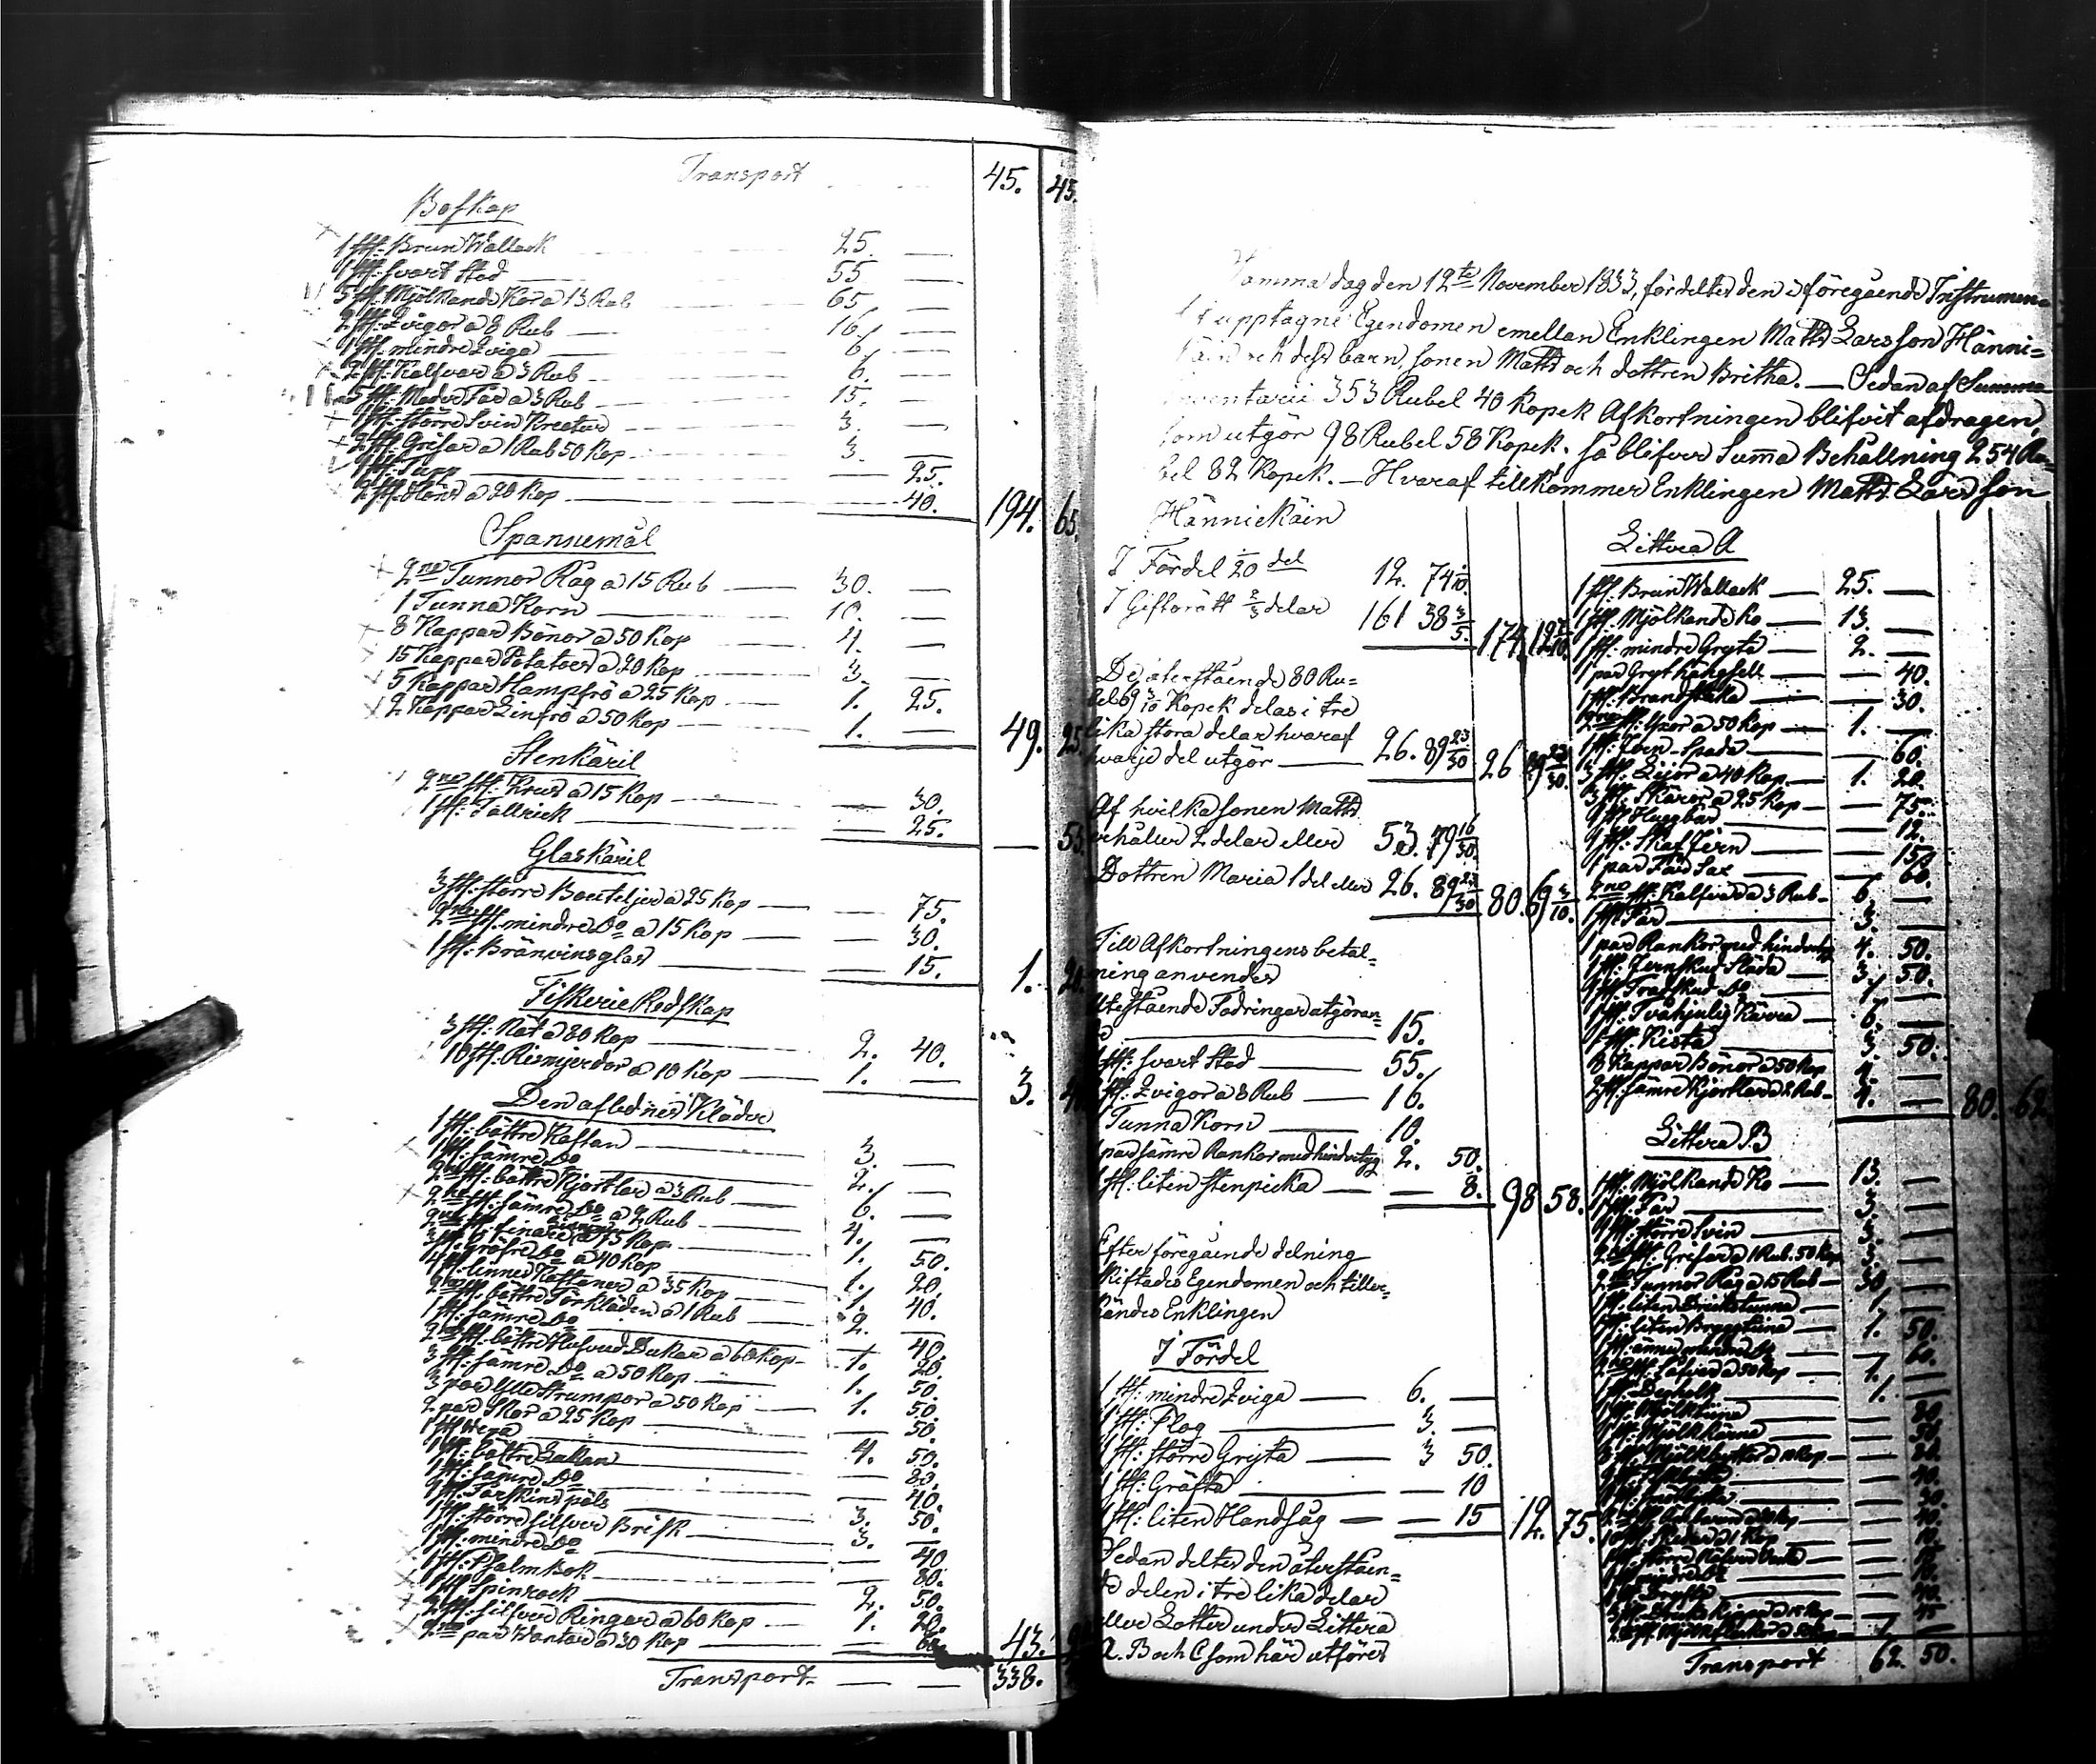 Transport 45. 45.
Boskap
1 st: Brun Wallack 25. —
1 st: svart Stod 55 —
5 st: Mjölkande Kor a 13 Rub 65 —
2 st: Qvigor a 8 Rub — 16. —
1 st: mindre Qviga — 6. —
2 st: Kalfvar a 3 Rub — 6. —
5 st: Moder Får a 3 Rub — 15. —
1 st: större Svin Kreatur — 3. —
2 st: Grisar a 1 Rub 50 Kop — 3. —
1 st: Tupp — — 25.
2 st: Höns a 20 Kop — 40. 194. 65.
Spannemål
2ne Tunnor Råg a 15 Rub — 30. —
1 Tunna Korn — 10. —
8 Kappar Bönor a 50 Kop — 4. —
15 Kappar Potatoes a 20 Kop 3. —
5 Kappar Hampfrö a 25 Kop — 1. 25.
2 Kappar Linfrö a 50 Kop — 1. — 49. 25.
Stenkäril
2ne st: Krus a 15 Kop — — 30.
1 st: Tallrick — — 25. — 55
Glaskäril
3 st: större Bouteljer a 25 Kop — — 75.
2ne st: mindre Do a 15 Kop — — 30.
1 st: Bränvins glas — — 15. 1. 20.
Fiskerie Redskap
3 st: Nät a 80 Kop — 2. 40.
10 st: Rismjerdor a 10 Kop — 1. — 3. 4
Den aflednes Kläder
1 st: bättre Kaftan — 3. —
1 st: sämre Do — 2. —
2ne st: bättre Kjortlar a 3 Rub — 6. —
2ne st: sämre Do a 2 Rub — 4. —
2ne st: finare a 75 Kop — 1. 50.
3 st: gröfre Do a 40 Kop — 1. 20.
4 st: linne Kaftaner a 35 Kop — 1. 40.
2ne st: bättre Förkläden a 1 Rub — 2. —
1 st: sämre Do — — 40.
2ne st: bättre Hufvud Dukar a 60 Kop — 1. 20.
3 st: sämre Do a 50 Kop — 1. 50.
3 par Ylle Strumpor a 50 Kop — 1. 50.
2 par Skor a 25 Kop — — 50.
1 st — 4. 50.
1 st: bättre Lakan — — 80.
1 st: sämre Do — — 40.
1 st: Fårskins päls — 3. 50.
1 st: större silfver Brisk — 3. —
1 st: mindre Do — — 40
1 st: Psalm Bok — — 80.
1 st: Spinrock — 2. 50.
2 st: silfver Ringar a 60 Kop — 1. 20.
2ne par Wantar a 30 Kop — — 60. 43.
Transport — — 338.
Samma dag den 12te November 1833, fördeltes den i föregående Instrumen=
t upptagne Egendomen emellan Enklingen Matts Larsson Hänni=
käin och dess barn, sonen Matts och dottren Britha. — Sedan af Summa
Inventarii 353 Rubel 40 Kopek Afkortningen blifvit afdragen,
som utgör 98 Rubel 58 Kopek. så blifver Summa Behållning 254 Ru=
bel 82 Kopek. — Hvaraf tillkommer Enklingen Matts Larsson
Hännickäin
I Fördel 1/20 del 12. 74 1/10.
I Giftorätt 2/3 delar 161 38 3/5. 174. 12 7/10.
De återstående 80 Ru=
bel 69 3/10 Kopek delas i tre
lika stora delar hvaraf
hvarje del utgör — 26. 89 23/30 26 89 23/30.
Af hvilka sonen Matts
erhåller 2 delar eller 53. 79 16/30.
Dottren Maria 1 del eller 26. 89 23/30 80. 69 3/10.
Till Afkortningens betal=
ning anvendes
Utestående Fodringar utgöran=
de — 15.
1 st: svart Stod — 55.
2 st: Qvigor a 8 Rub — 16.
1 Tunna Korn — 10.
1 par sämre Rankor med hindertyg 2. 50.
1 st: liten Stenpicka — — 8. 98 58.
Efter föregående delning
skiftades Egendomen och tiller=
kändes Enklingen
I Fördel
1 st: mindre Qviga — 6. —
1 st: Plog — 3. —
1 st: större Gryta — 3 50.
1 st: Gräfta — — 10
1 st: liten Handsåg — — 15 12. 75.
Sedan deltes den återståen=
de delen i tre lika delar
eller Lotter under Littera
A. B och C som här utföres
Littera A
1 st: Brun Wallack — 25. —
1 st: Mjölkande Ko — 13. —
1 st: mindre Gryta — 2. —
1 par — 40.
1 st: Brandstaka — — 30.
2ne st: Yxor a 50 Kop — 1. —
1 st: Jern-Spada — — 60.
3 st: Liior a 40 Kop — 1. 20.
3 st: Skäror a 25 Kop — — 75.
1 st: Huggbår — — 12.
1 st: Skaf Jern — — 15.
1 par Får Sax — — 60.
2ne st: Kalfvar a 3 Rub — 6. —
1 st: Får — 3. —
1 par Rankor med hindertyg 4. 50.
1 st: Jernskud Släda — 3. 50.
1 st: Träskud Do — 1. —
1 st: Tvåhjulig Kärra — 6. —
1 st: Kista — 3. 50.
8 Kappar Bönor a 50 Kop 4. —
2 st: sämre Kjortlar a 2 Rub — 4. — 80. 62.
Littera B
1 st: Mjölkande Ko — 13. —
1 st: Får — 3. —
1 st: större Svin — 3. —
2 st: Grisar a 1 Rub 50 Kop 3. —
2ne Tunnor Råg a 15 Rub — 30 —
1 st: liten Dricktunna — 1. —
1 st: liten Bryggtina — 1. 50.
Transport 62. 50.